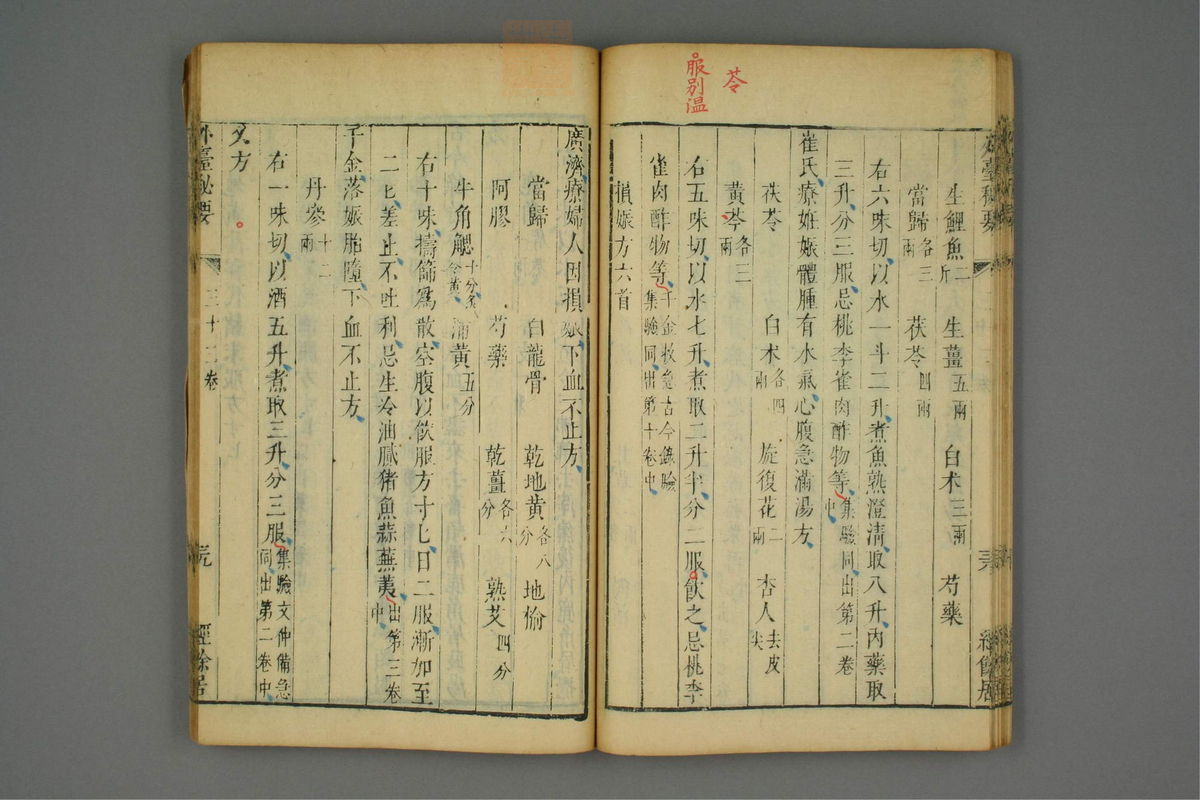 苓
服別溫
外臺秘要
生鯉魚二斤 生薑五兩 白朮三兩 芍藥
當歸各三兩 茯苓四兩
右六味切以水一斗二升煮魚熟澄清取八升內藥取
三升分三服忌桃李雀肉酢物等集驗同出第二卷中
崔氏療妊娠體腫有水氣心腹急滿湯方
茯苓 白朮各四兩 旋復花二兩 杏人去皮尖
黃芩各三兩
右五味切以水七升煮取二升半分二服飲之忌桃李
雀肉酢物等千金救急古今錄驗集驗同出第十卷中
損娠方六首
廣濟療婦人因損娠下血不止方
當歸 白龍骨 乾地黃各八分 地愉
阿膠 芍藥 乾薑各六分 熟艾四分
牛角䚡十分炙令黃 蒲黃五分
右十味擣篩為散空腹以飲服方寸匕日二服漸加至
二匕差止不吐利忌生冷油膩猪魚蒜蕪荑出第三卷中
子金落娠胎墮下血不止方
丹參十二兩
右一味切以酒五升煮取三升分三服集驗文仲備急同出第二卷中
又方
外臺祕要 三十三卷 經餘居